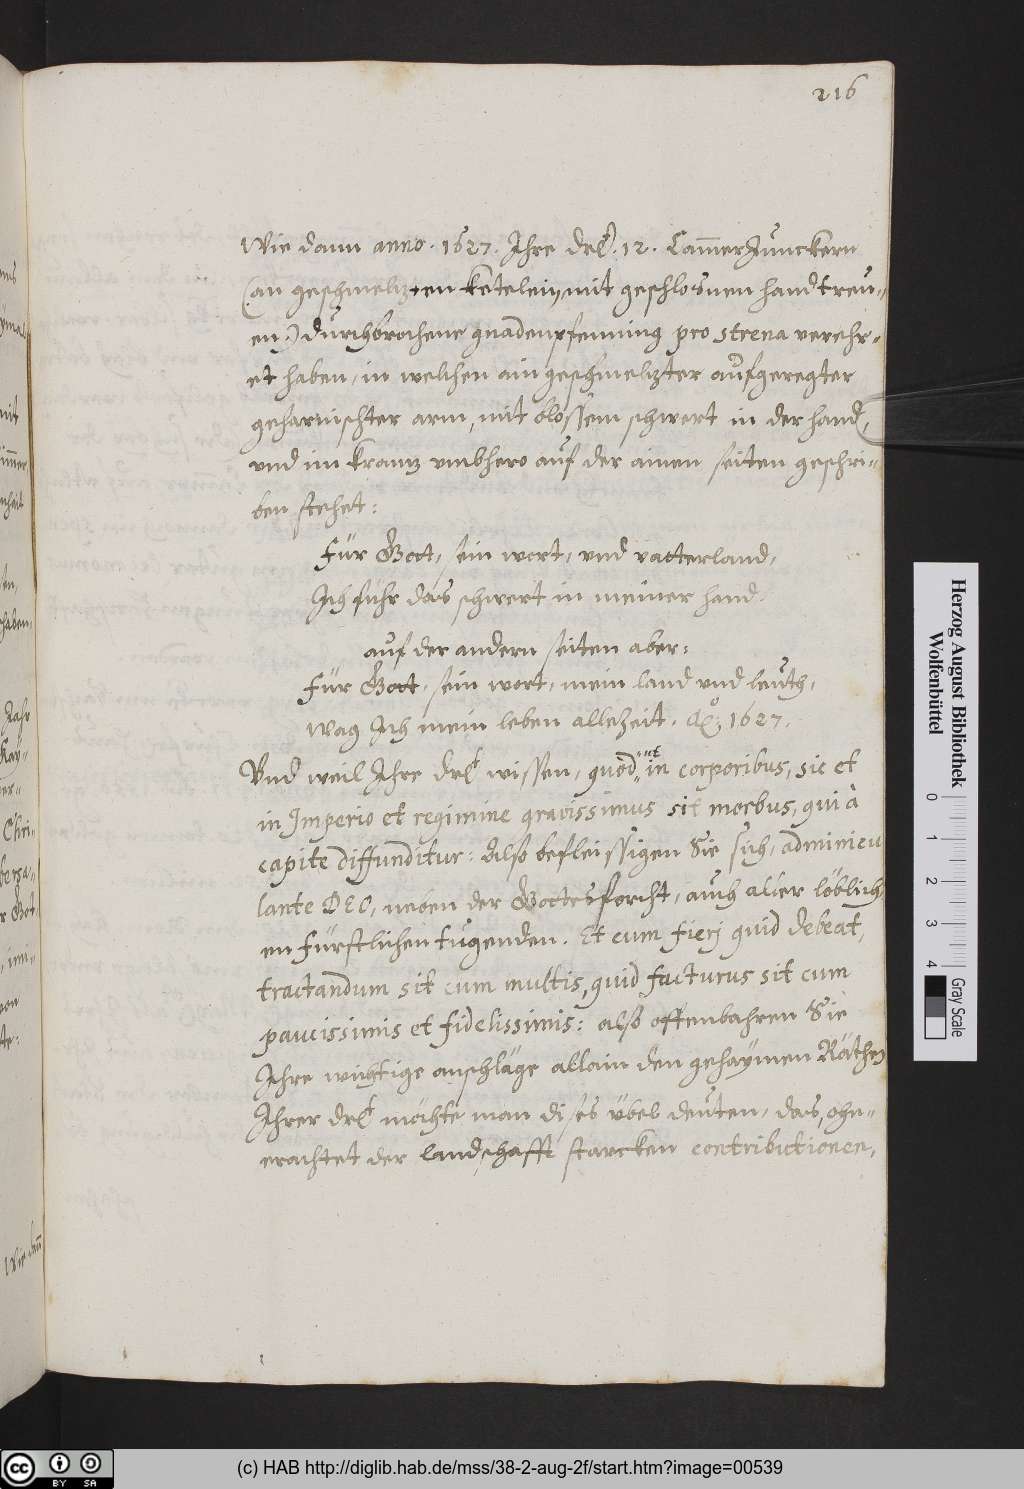 216
Wie dann anno. 1627. Ihre Drl. 12. Cam̄erJunckern
(an geschmeltzten ketelein, mit geschlosnen handtreu-
en:) durchbrochene gnadenpfenning pro strena verehr-
et haben, in welchen ain geschmeltzter aufgeregter
geharnischter arm, mit blossem schwert in der hand,
vnd im krantz vmbhero auf der ainen seiten geschri-
ben stehet:
Für Gott, sein wort, vnd vatterland,
Ich führ das schwert in meiner hand.
auf der andern seiten aber:
Für Gott, sein wort, mein land vnd leuth,
Wag Ich mein leben allezeit. Aō. 1627.
Vnd weil Ihre Drl wissen, quod, ut in corporibus, sic et
in Imperio et regimine gravissimus sit morbus, qui à
capite diffunditur: Also befleissigen Sie sich, adminicu
lante DEO, neben der Gottesforcht, auch aller löblich
en Fürstlichen tugenden. Et cum fierj quid debeat,
tractandum sit cum multis, quid facturus sit cum
paucissimis et fidelissimis: also offenbahren Sie
Ihre wichtige anschläge allain den gehaymen Räthen
Ihrer Drl möchte man dises übel deuten, das, ohn-
erachtet der landschafft starcken contributionen,
Wie dann
Herzog August Bibliothek
Wolfenbüttel
0 1 2 3 4
Gray Scale
cc BY SA
(c) HAB http://diglib.hab.de/mss/38-2-aug-2f/start.htm?image=00539